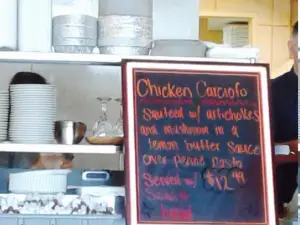 Chicken Carciofo
Sauteed w/ artichokes
and mushroom in a
lemon butter sauce
over penne Pasta
Served w/ $12.49
Salad &
bread